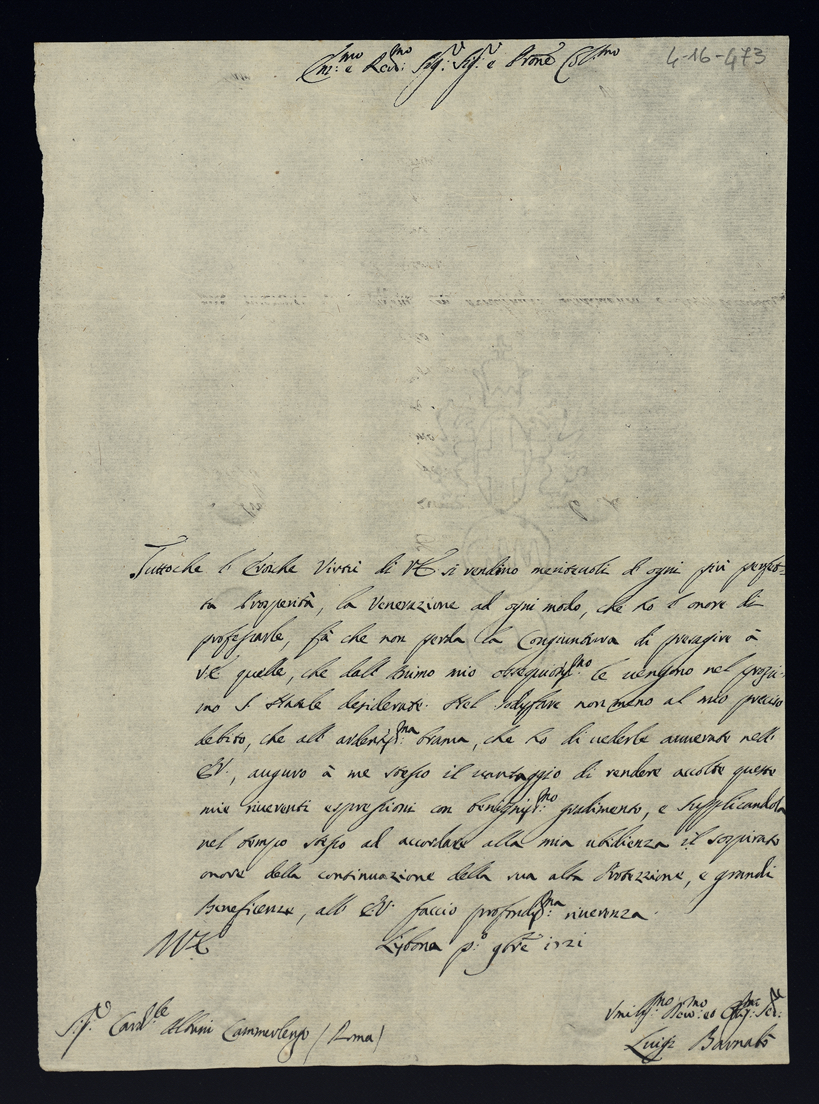 Em:mo e Rev:mo Sig:r Sig:r e Prone Col:mo
4-16-473
Tuttoche l'Eroiche Virtù di VE si rendino meriteuoli di ogni più perfet=
ta Prosperità, la Venerazione ad ogni modo, che hò l'onore di
professarle, fà che non perda la Congiuntura di presagire à
VE quelle, che dall'Animo mio ossequiosiss:mo le uengono nel prossi:
mo S. Natale desiderate. Nel sodisfare non meno al mio preciso
debito, che all'ardentiss:ma brama, che hò di uederle auuerate nell'
EV., auguro à me stesso il uantaggio di rendere accolte queste
mie riuerenti espressioni con benigniss:mo gradimento, e supplicandola
nel tempo stesso ad accordare alla mia ubidienza il sospirato
onore della continuazione della sua alta Protezzione, e grandi
Beneficenze, all'EV. faccio profondiss:ma riuerenza.
Lisbona p:o 9bre 1721
S:r Card:le Albani Cammerlengo (Roma)
Vmiliss:mo Deu:mo ed Obblig:mo Ser:re
Luigi Barnabò